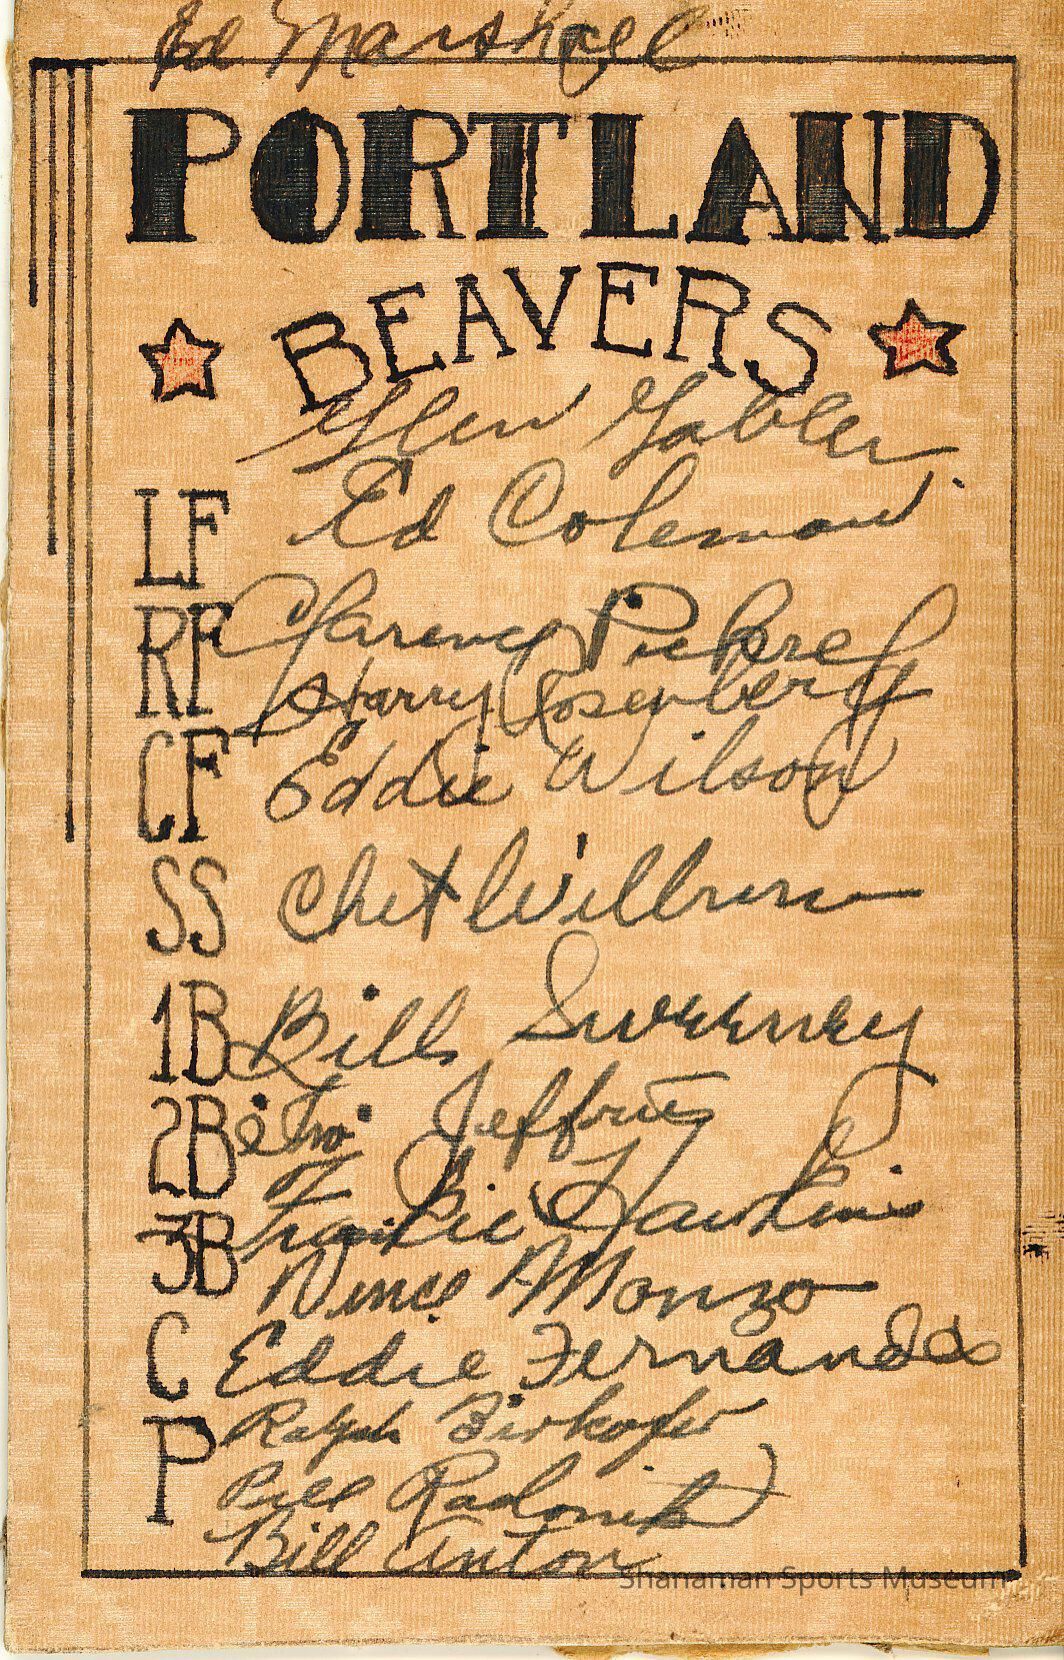 Ed Marshall
PORTLAND
BEAVERS
Glen Gabler
LF Ed Coleman
RF Clarence Pickrel
Harry Rosenberg
CF Eddie Wilson
SS Chet Wilburn
1B Bill Sweeney
2B Irv Jeffries
3B Frankie Hawkins
Vince Monzo
C Eddie Fernandes
P Ralph Birkofer
Bill Radonits
Bill Anton
Shanaman Sports Museum